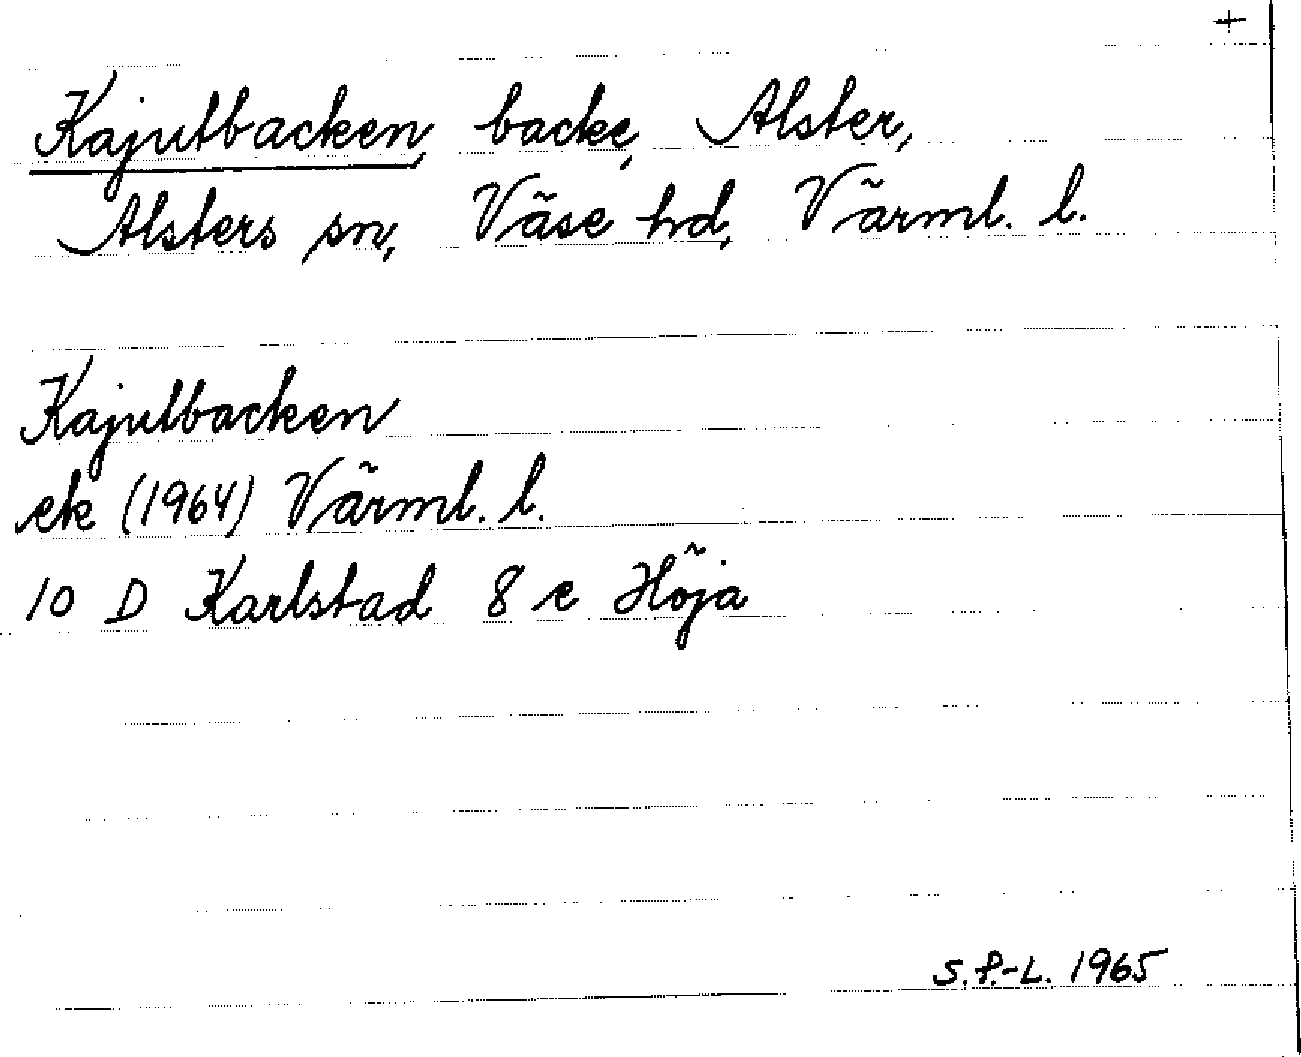 +
Kajutbacken, backe, Alster,
Alsters sn, Väse hd, Värml. l.
Kajutbacken
ek (1964) Värml. l.
10 D Karlstad 8 c Höja
S.P.-L. 1965